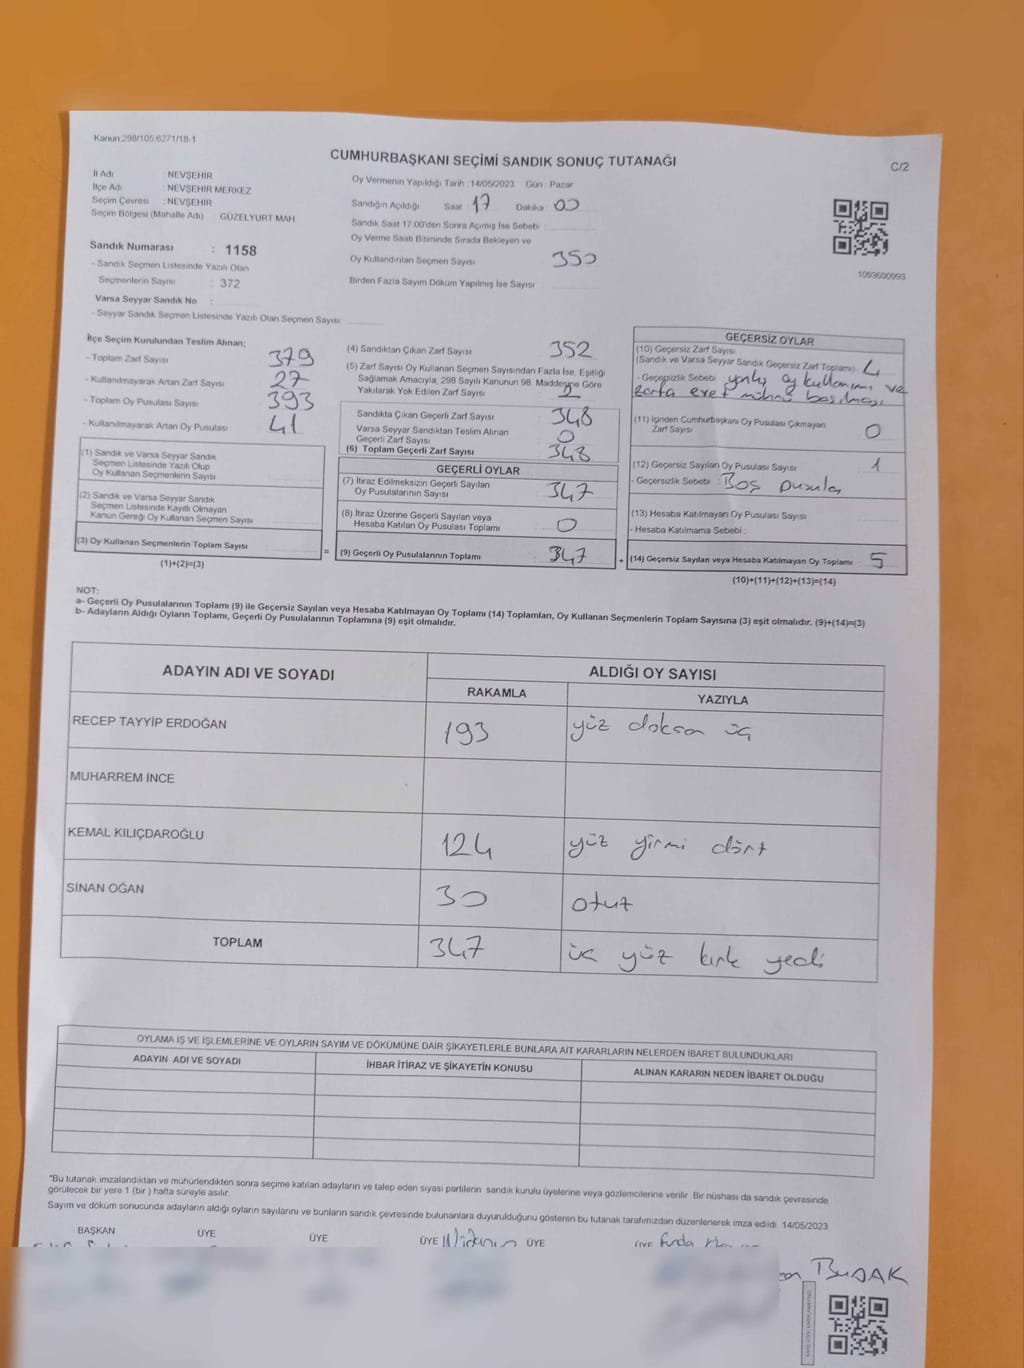 Kanun:298/105.6271/18-1
CUMHURBAŞKANI SEÇİMİ SANDIK SONUÇ TUTANAĞI
C/2
İl Adı : NEVŞEHİR
İlçe Adı : NEVŞEHİR MERKEZ
Seçim Çevresi : NEVŞEHİR
Seçim Bölgesi (Mahalle Adı) GÜZELYURT MAH
Sandık Numarası : 1158
- Sandık Seçmen Listesinde Yazılı Olan
Seçmenlerin Sayısı : 372
Varsa Seyyar Sandık No :
- Seyyar Sandık Seçmen Listesinde Yazılı Olan Seçmen Sayısı:
Oy Vermenin Yapıldığı Tarih : 14/05/2023 Gün : Pazar
Sandığın Açıldığı Saat 17 Dakika 00
Sandık Saat 17:00'den Sonra Açmış İse Sebebi :
Oy Verme Saati Bitiminde Sırada Bekleyen ve
Oy Kullandırılan Seçmen Sayısı 350
Birden Fazla Sayım Döküm Yapılmış İse Sayısı
1093600993
İlçe Seçim Kurulundan Teslim Alınan;
- Toplam Zarf Sayısı 379
- Kullanılmayarak Artan Zarf Sayısı 27
- Toplam Oy Pusulası Sayısı 393
- Kullanılmayarak Artan Oy Pusulası 41
(1) Sandık ve Varsa Seyyar Sandık
Seçmen Listesinde Yazılı Olup
Oy Kullanan Seçmenlerin Sayısı
(2) Sandık ve Varsa Seyyar Sandık
Seçmen Listesinde Kayıtlı Olmayan
Kanun Gereği Oy Kullanan Seçmen Sayısı
(3) Oy Kullanan Seçmenlerin Toplam Sayısı
(1)+(2)=(3)
=
(4) Sandıktan Çıkan Zarf Sayısı 352
(5) Zarf Sayısı Oy Kullanan Seçmen Sayısından Fazla İse, Eşitliği
Sağlamak Amacıyla, 298 Sayılı Kanunun 98. Maddesine Göre
Yakılarak Yok Edilen Zarf Sayısı 2
Sandıkta Çıkan Geçerli Zarf Sayısı 348
Varsa Seyyar Sandıktan Teslim Alınan
Geçerli Zarf Sayısı 0
(6) Toplam Geçerli Zarf Sayısı 348
GEÇERLİ OYLAR
(7) İtiraz Edilmeksizin Geçerli Sayılan
Oy Pusulalarının Sayısı 347
(8) İtiraz Üzerine Geçerli Sayılan veya
Hesaba Katılan Oy Pusulası Toplamı 0
(9) Geçerli Oy Pusulalarının Toplamı 347
+
GEÇERSİZ OYLAR
(10) Geçersiz Zarf Sayısı
(Sandık ve Varsa Seyyar Sandık Geçersiz Zarf Toplamı) 4
- Geçersizlik Sebebi yanlış oy kullanımı ve
zarfa evet mührü basılması
(11) İçinden Cumhurbaşkanı Oy Pusulası Çıkmayan
Zarf Sayısı 0
(12) Geçersiz Sayılan Oy Pusulası Sayısı 1
- Geçersizlik Sebebi : Boş pusula
(13) Hesaba Katılmayan Oy Pusulası Sayısı
- Hesaba Katılmama Sebebi :
(14) Geçersiz Sayılan veya Hesaba Katılmayan Oy Toplamı 5
(10)+(11)+(12)+(13)=(14)
NOT:
a- Geçerli Oy Pusulalarının Toplamı (9) ile Geçersiz Sayılan veya Hesaba Katılmayan Oy Toplamı (14) Toplamları, Oy Kullanan Seçmenlerin Toplam Sayısına (3) eşit olmalıdır. (9)+(14)=(3)
b- Adayların Aldığı Oyların Toplamı, Geçerli Oy Pusulalarının Toplamına (9) eşit olmalıdır.
ADAYIN ADI VE SOYADI ALDIĞI OY SAYISI
RAKAMLA YAZIYLA
RECEP TAYYİP ERDOĞAN 193 yüz doksan üç
MUHARREM İNCE
KEMAL KILIÇDAROĞLU 124 yüz yirmi dört
SİNAN OĞAN 30 otuz
TOPLAM 347 üç yüz kırk yedi
OYLAMA İŞ VE İŞLEMLERİNE VE OYLARIN SAYIM VE DÖKÜMÜNE DAİR ŞİKAYETLERLE BUNLARA AİT KARARLARIN NELERDEN İBARET BULUNDUKLARI
ADAYIN ADI VE SOYADI İHBAR İTİRAZ VE ŞİKAYETİN KONUSU ALINAN KARARIN NEDEN İBARET OLDUĞU
*Bu tutanak imzalandıktan ve mühürlendikten sonra seçime katılan adayların ve talep eden siyasi partilerin sandık kurulu üyelerine veya gözlemcilerine verilir. Bir nüshası da sandık çevresinde
görülecek bir yere 1 (bir ) hafta süreyle asılır.
Sayım ve döküm sonucunda adayların aldığı oyların sayılarını ve bunların sandık çevresinde bulunanlara duyurulduğunu gösteren bu tutanak tarafımızdan düzenlenerek imza edildi. 14/05/2023
BAŞKAN ÜYE ÜYE ÜYE ÜYE ÜYE Funda
BUDAK